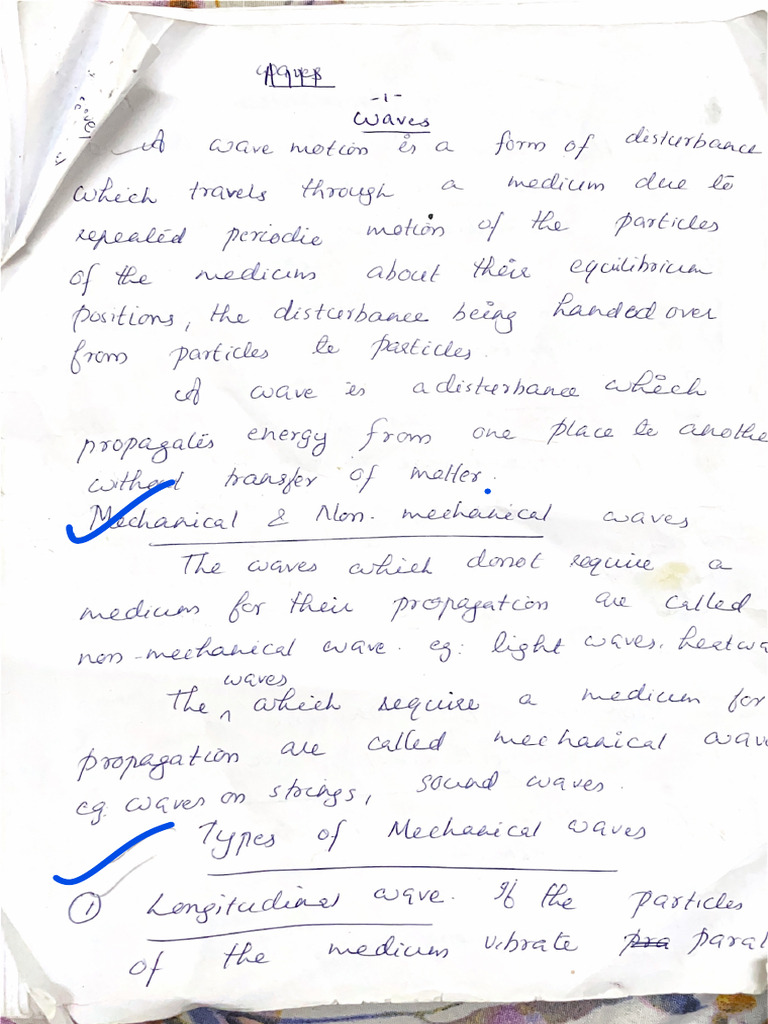 Waves
-1-
Waves
A wave motion is a form of disturbance
which travels through a medium due to
repeated periodic motion of the particles
of the medium about their equilibrium
positions, the disturbance being handed over
from particles to particles.
A wave is a disturbance which
propagates energy from one place to anothe
without transfer of matter.
Mechanical & Non-mechanical waves
The waves which donot require a
medium for their propagation are called
non-mechanical wave. eg: light waves, heatwa
waves
The ^ which require a medium for
propagation are called mechanical wav
eg. waves on strings, sound waves.
Types of Mechanical waves
① Longitudinal wave. If the particles
of the medium vibrate pra paral